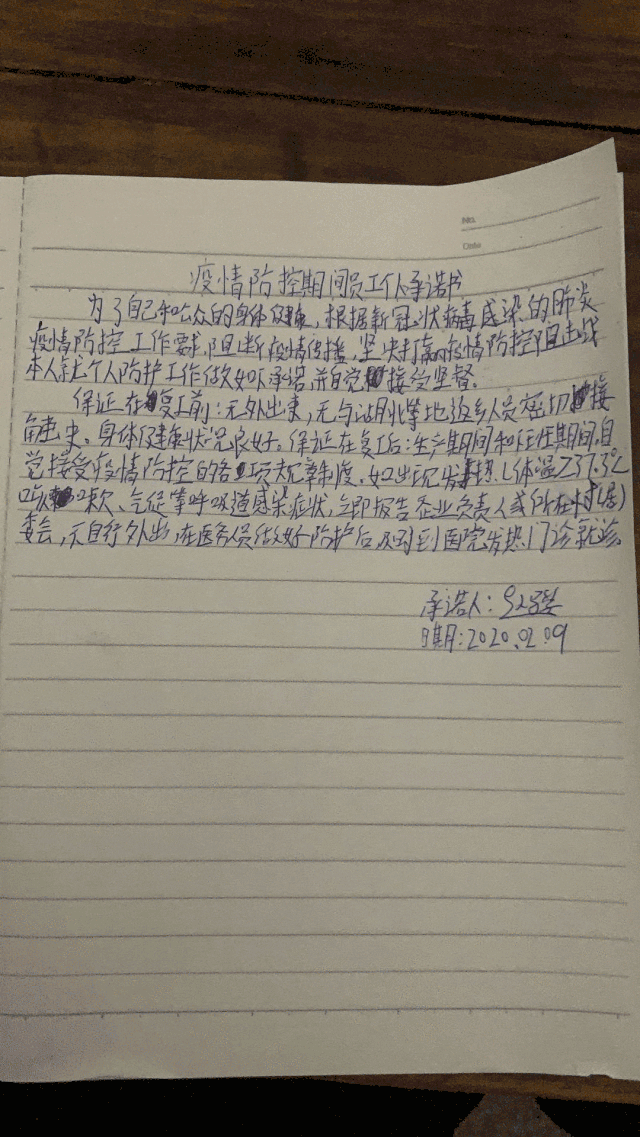 No.
Date
疫情防控期间员工个人承诺书
为了自己和公众的身体健康，根据新冠状病毒感染的肺炎
疫情防控工作要求，阻断疫情传播，坚决打赢疫情防控阻击战
本人就个人防护工作做如下承诺，并自觉接受坚督。
保证在复工前：无外出史，无与湖北等地返乡人员密切接
触史。身体健康状况良好。保证在复工后：生产期间和住宿期间，自
觉接受疫情防控的各项规章制度。如出现发热（体温≥37.3℃
咳嗽、气促等呼吸道感染症状，立即报告企业负责人或所在村（居）
委会，不自行外出，在医务人员做好防护后及时到医院发热门诊就诊。
承诺人：
日期：2020.02.09